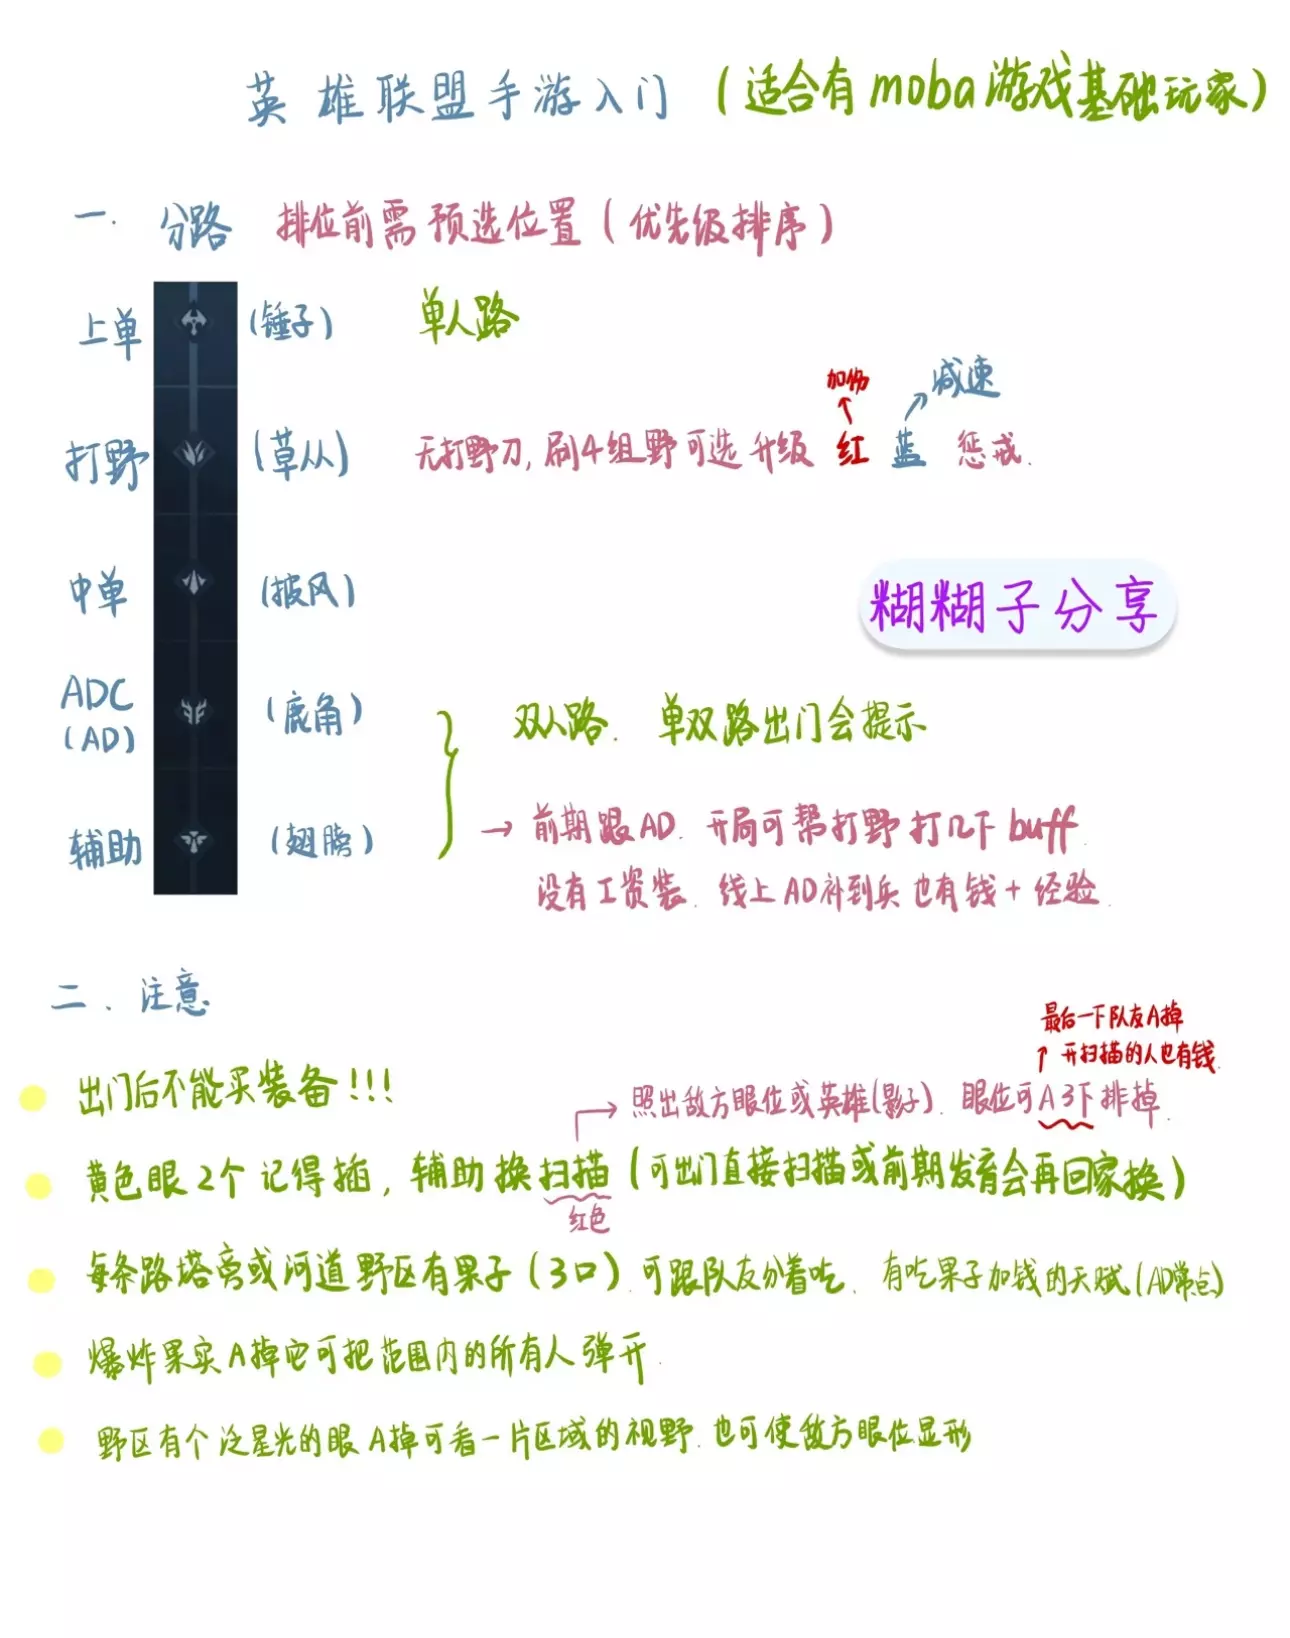 英雄联盟手游入门（适合有moba游戏基础玩家）
一. 分路 排位前需预选位置（优先级排序）
上单 （锤子） 单人路
加伤 减速
打野 （草从） 无打野刀，刷4组野可选升级 红 蓝 惩戒.
中单 （披风）
糊糊子分享
ADC （鹿角）
（AD）
双人路. 单双路出门会提示
辅助 （翅膀）
→ 前期跟AD. 开局可帮打野打几下buff.
没有工资装. 线上AD补到兵也有钱+经验.
二. 注意
出门后不能买装备!!!
最后一下队友A掉
开扫描的人也有钱.
照出敌方眼位或英雄(影子). 眼位可A3下排掉.
黄色眼2个记得插, 辅助换扫描（可出门直接扫描或前期发育会再回家换）
红色
每条路塔旁或河道野区有果子（3口）.可跟队友分着吃. 有吃果子加钱的天赋(AD常点)
爆炸果实A掉它可把范围内的所有人弹开.
野区有个泛星光的眼A掉可看一片区域的视野.也可使敌方眼位显形